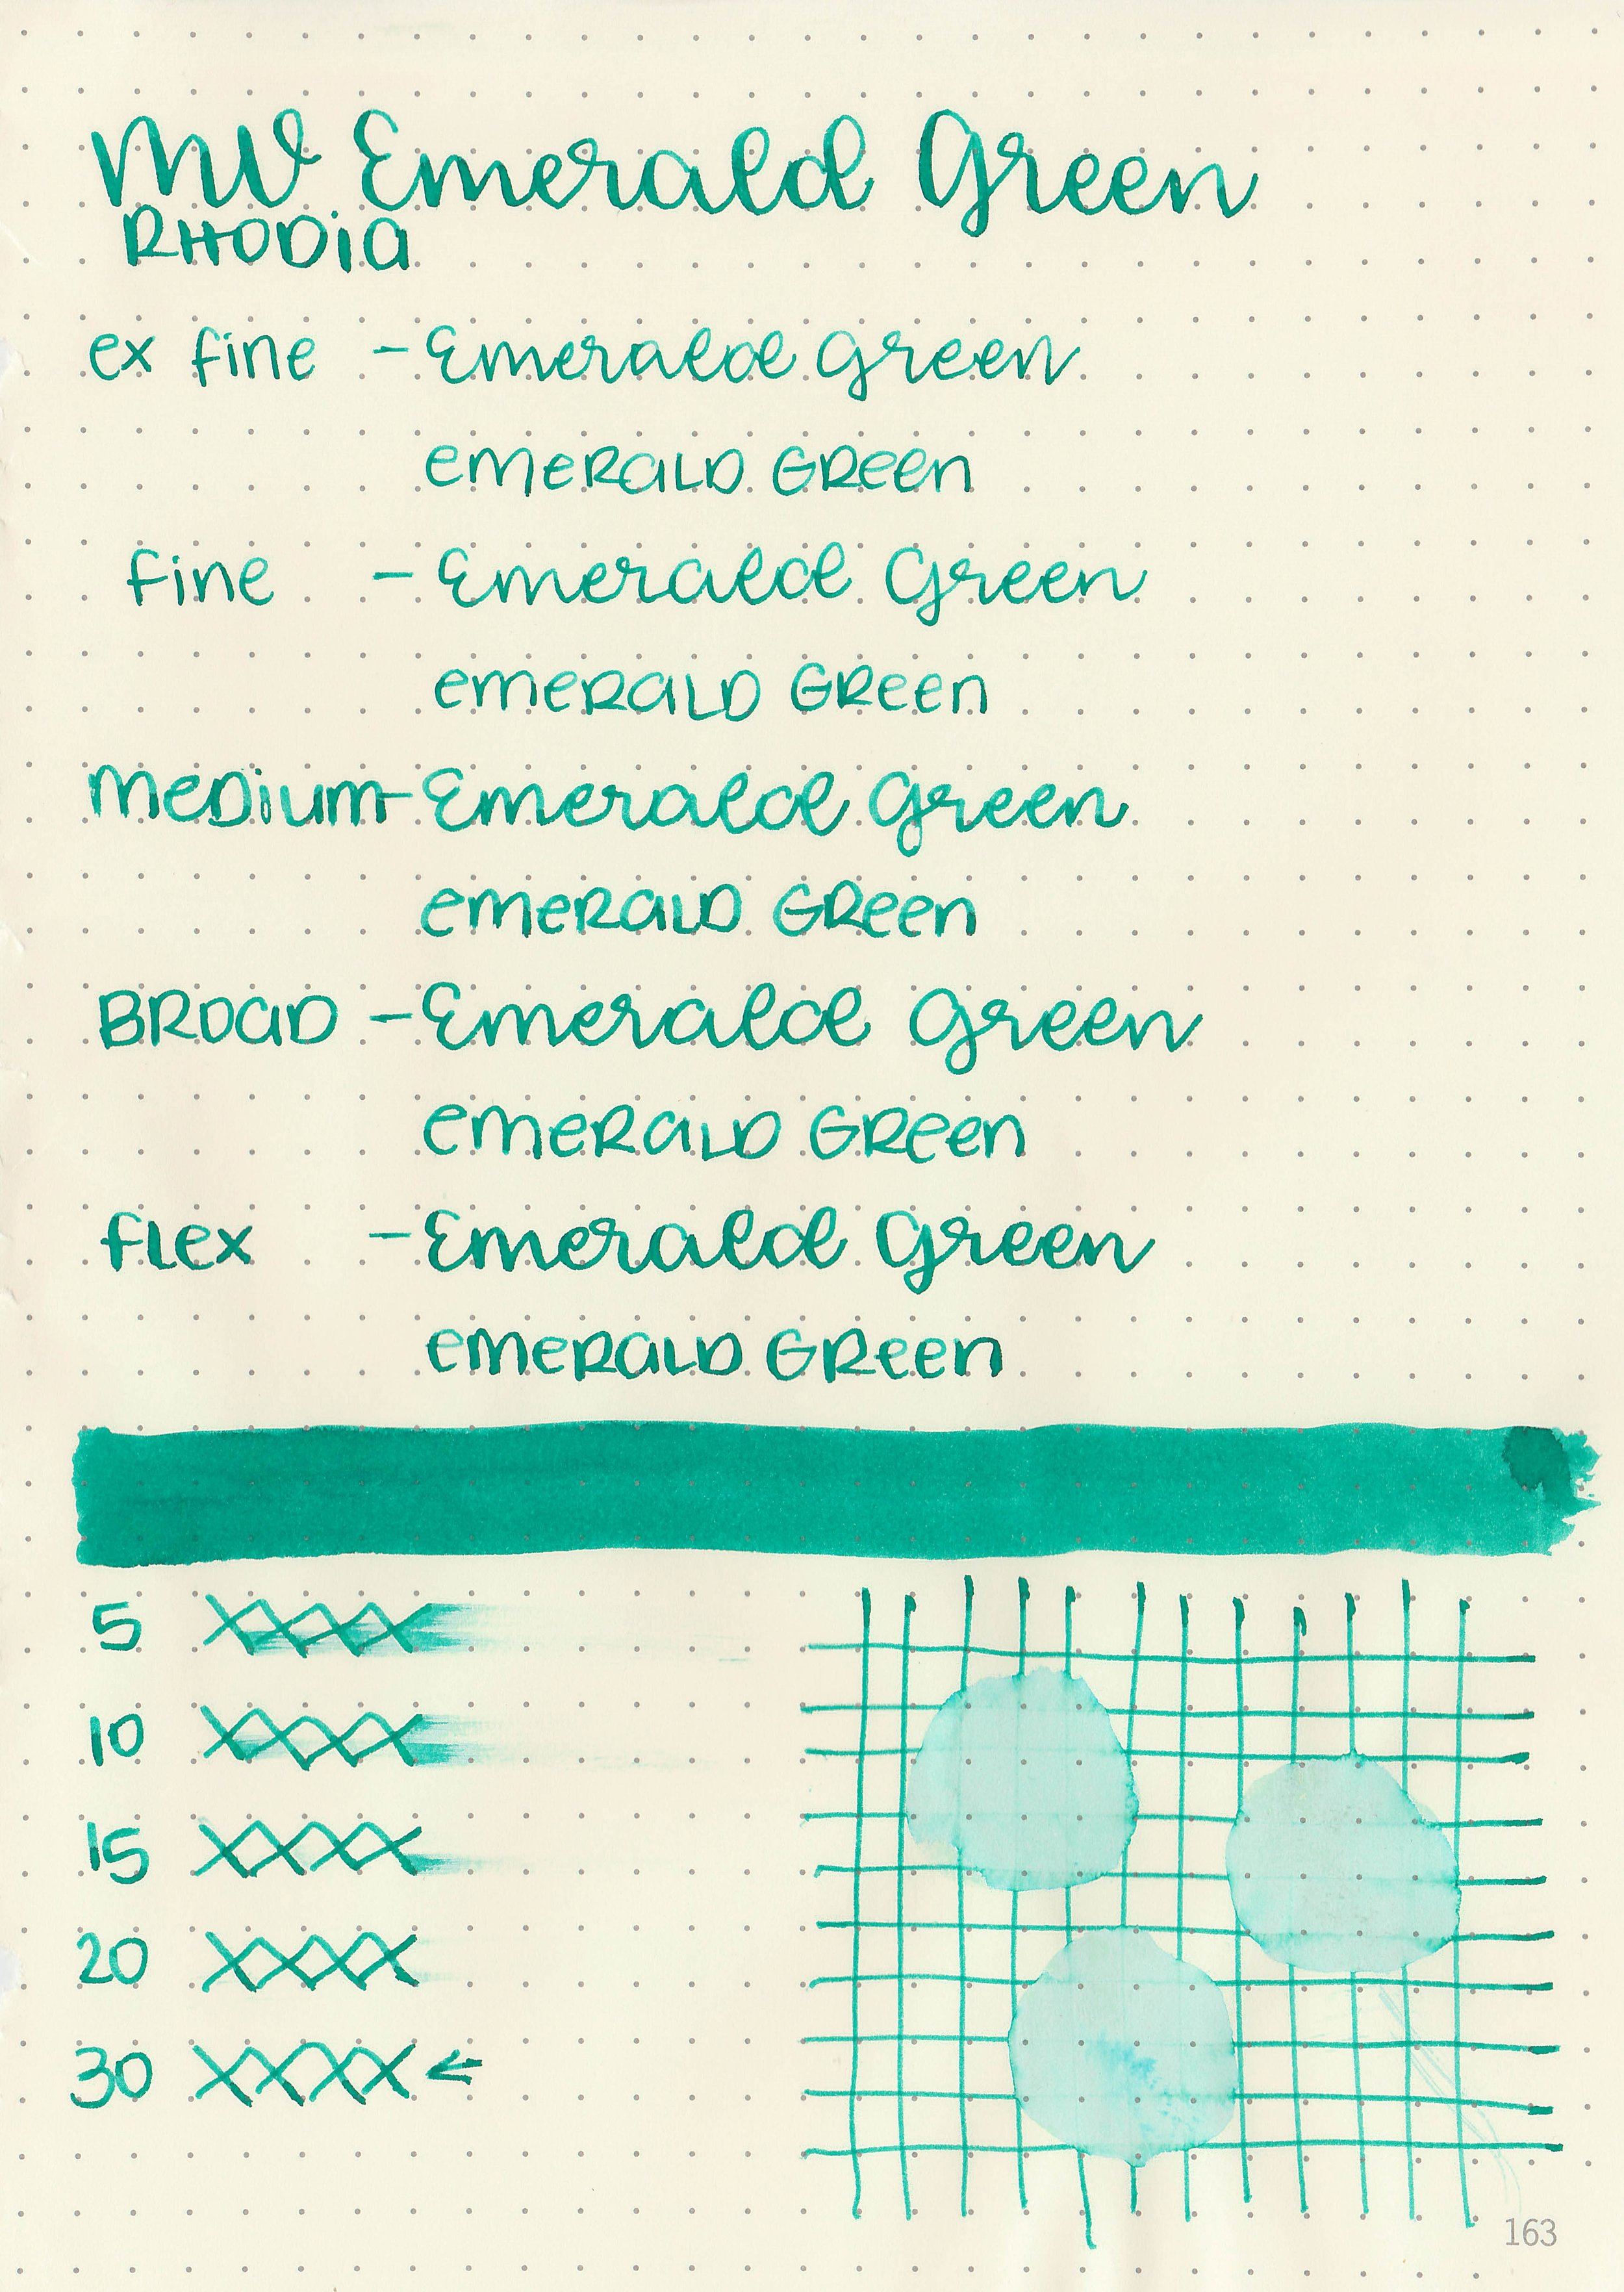 MV Emerald Green
RHODia
ex fine - Emerald Green
emeRaLD GReen
fine - Emerald Green
emeRaLD GReen
meDium - Emerald Green
emeRaLD GReen
BROaD - Emerald Green
emeRaLD GReen
fLex - Emerald Green
emeRaLD GReen
5 XXXX
10 XXXX
15 XXXX
20 XXXX
30 XXXX ←
163